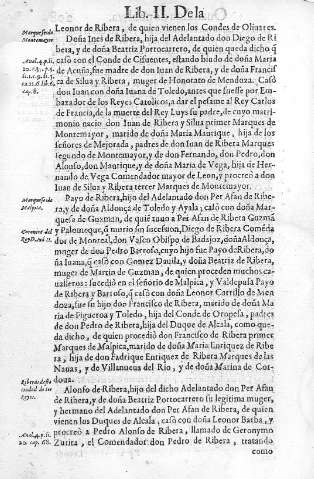 Lib. II. De la
Leonor de Ribera, de quien vienen los Condes de Oliuares.
Marquesado Montemayor.
Doña Ines de Ribera, hija del Adelantado don Diego de Ri
bera, y de doña Beatriz Portocarrero, de quien queda dicho q̃
casò con el Conde de Cifuentes, estando biudo de doña Maria
de Acuña, fue madre de don Iuan de Ribera, y de doña Francis
ca de Silua, y Ribera, muger de Honorato de Mendoça. Casò
don Iuan con doña Iuana de Toledo, antes que fuesse por Em
baxador de los Reyes Catolicos, a dar el pesame al Rey Carlos
de Francia, de la muerte del Rey Luys su padre, de cuyo matri
monio nacio don Iuan de Ribera y Silua primer Marques de
Montemayor, marido de doña Maria Manrique, hija de los
señores de Mejorada, padres de don Iuan de Ribera Marques
segundo de Montemayor, y de don Fernando, don Pedro, don
Alonso, don Manrique, y de doña Maria de Vega, hija de Her-
nando de Vega Comendador mayor de Leon, y procreò a don
Iuan de Silua y Ribera tercer Marques de Montemayor.
Marquesado Malpica.
Payo de Ribera, hijo del Adelantado don Per Afan de Ribe-
ra, y de doña Aldonça de Toledo y Ayala; casò con doña Mar-
quesa de Guzman, de quiẽ tuuo a Per Afan de Ribera Guzmã
y Palomeque, q̃ murio sin sucession, Diego de Ribera Comẽda
dor de Monreal, don Vasco Obispo de Badajoz, doña Aldonça,
muger de don Pedro Barroso, cuyo hijo fue Payo de Ribera, do
ña Iuana, q̃ casò con Gomez Dauila, y doña Beatriz de Ribera,
muger de Martin de Guzman, de quien proceden muchos ca-
ualleros: sucediò en el señorio de Malpica, y Valdepusa Payo
de Ribera y Barroso, q̃ casò con doña Leonor Carrillo de Men
doça, fue su hijo don Francisco de Ribera, marido de doña Ma
ria de Figueroa y Toledo, hija del Conde de Oropesa, padres
de don Pedro de Ribera, hija del Duque de Alcala, como que-
da dicho, de quien procediò don Francisco de Ribera primer
Marques de Malpica, marido de doña Maria Enriquez de Ribe
ra, hija de don Fadrique Enriquez de Ribera Marques de las
Nauas, y de Villanueua del Rio, y de doña Marina de Cor-
doua.
Alonso de Ribera, hijo del dicho Adelantado don Per Afan
de Ribera, y de doña Beatriz Portocarrero su legitima muger,
y hermano del Adelantado don Per Afan de Ribera, de quien
vienen los Duques de Alcala, casò con doña Leonor Barba, y
procreò a Pedro Alonso de Ribera, llamado de Geronymo
Zurita, el Comendador don Pedro de Ribera, tratando
como